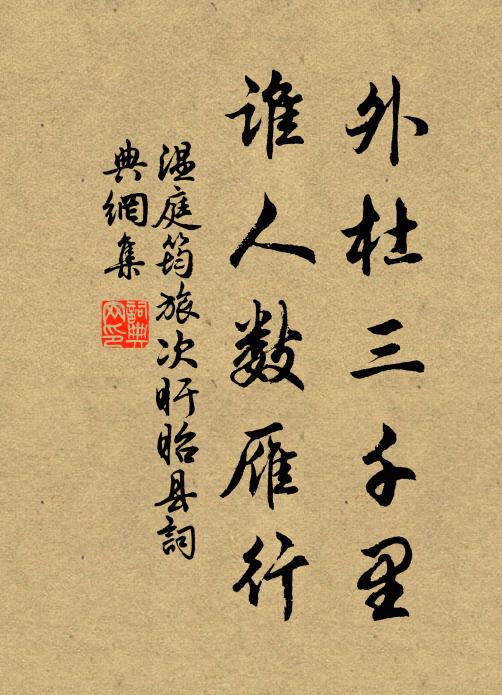 外杜三千里
谁人数雁行
温庭筠旅次盱眙县詞
典網集
詞典
网印